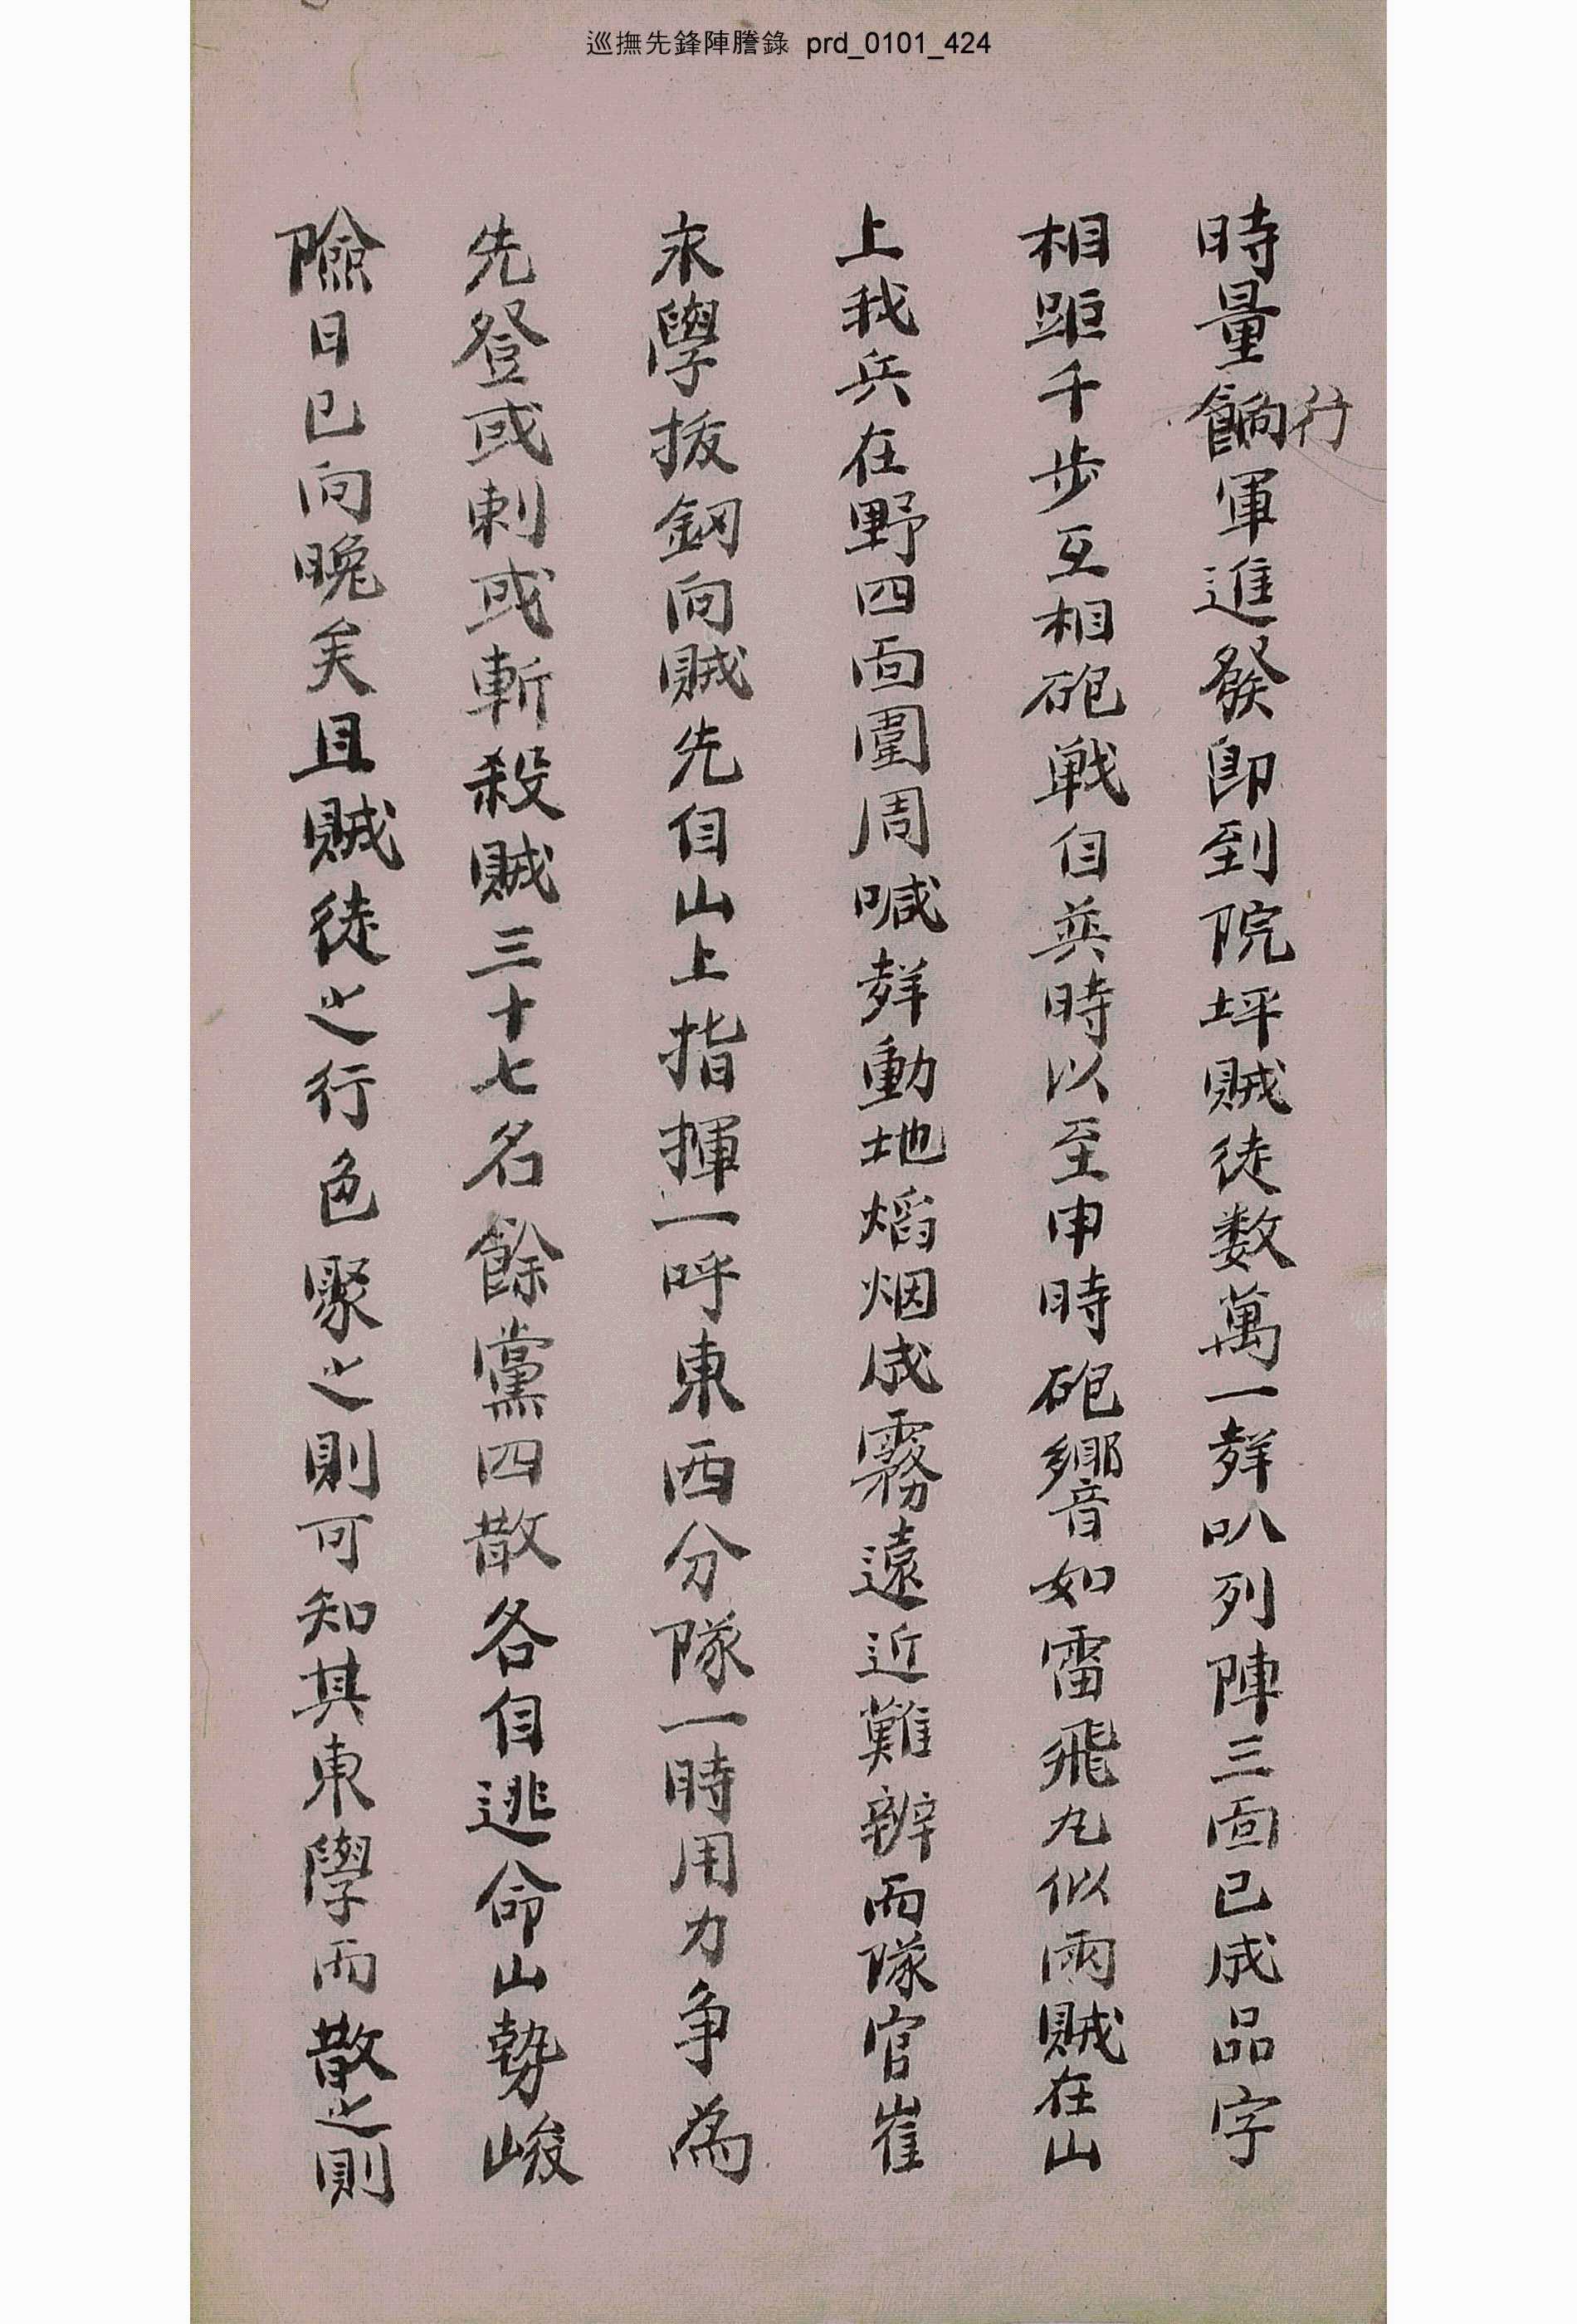 巡撫先鋒陣謄錄 prd_0101_424
時量餉行軍進發卽到院坪賊徒数萬一群叭列陣三面已成品字
相距千步互相砲戦自巽時以至申時砲響如雷飛丸似雨賊在山
上我兵在野四面圍周喊群動地熖烟成霧遠近難辨而隊官崔
永學拔釼向賊先自山上指揮一呼東西分隊一時用力争為
先登或刺或斬殺賊三十七名餘黨四散各自逃命山勢峻
險日已向晩矣且賊徒之行色聚之則可知其東學而散之則